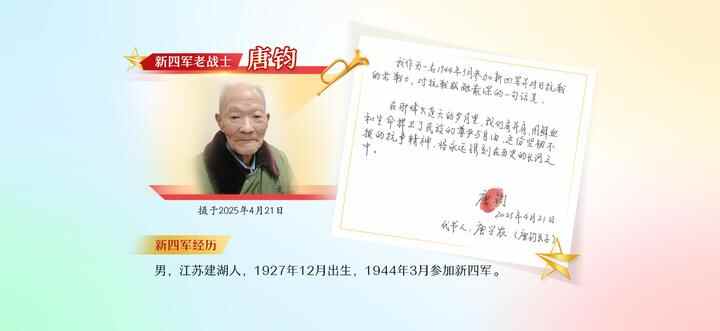 新四军老战士 唐钧
摄于2025年4月21日
新四军经历
男，江苏建湖人，1927年12月出生，1944年3月参加新四军。
我作为一名1944年3月参加新四军并对日抗战
的老战士，对抗战胜利最深的一句话是，
在那烽火连天的岁月里，我们
和生命捍卫了民族的尊严与自由，这份坚韧不
拔的抗争精神，将永远镌刻在历史的长河之
中。
唐钧
2025年4月21日
代书人：唐学农（唐钧长子）